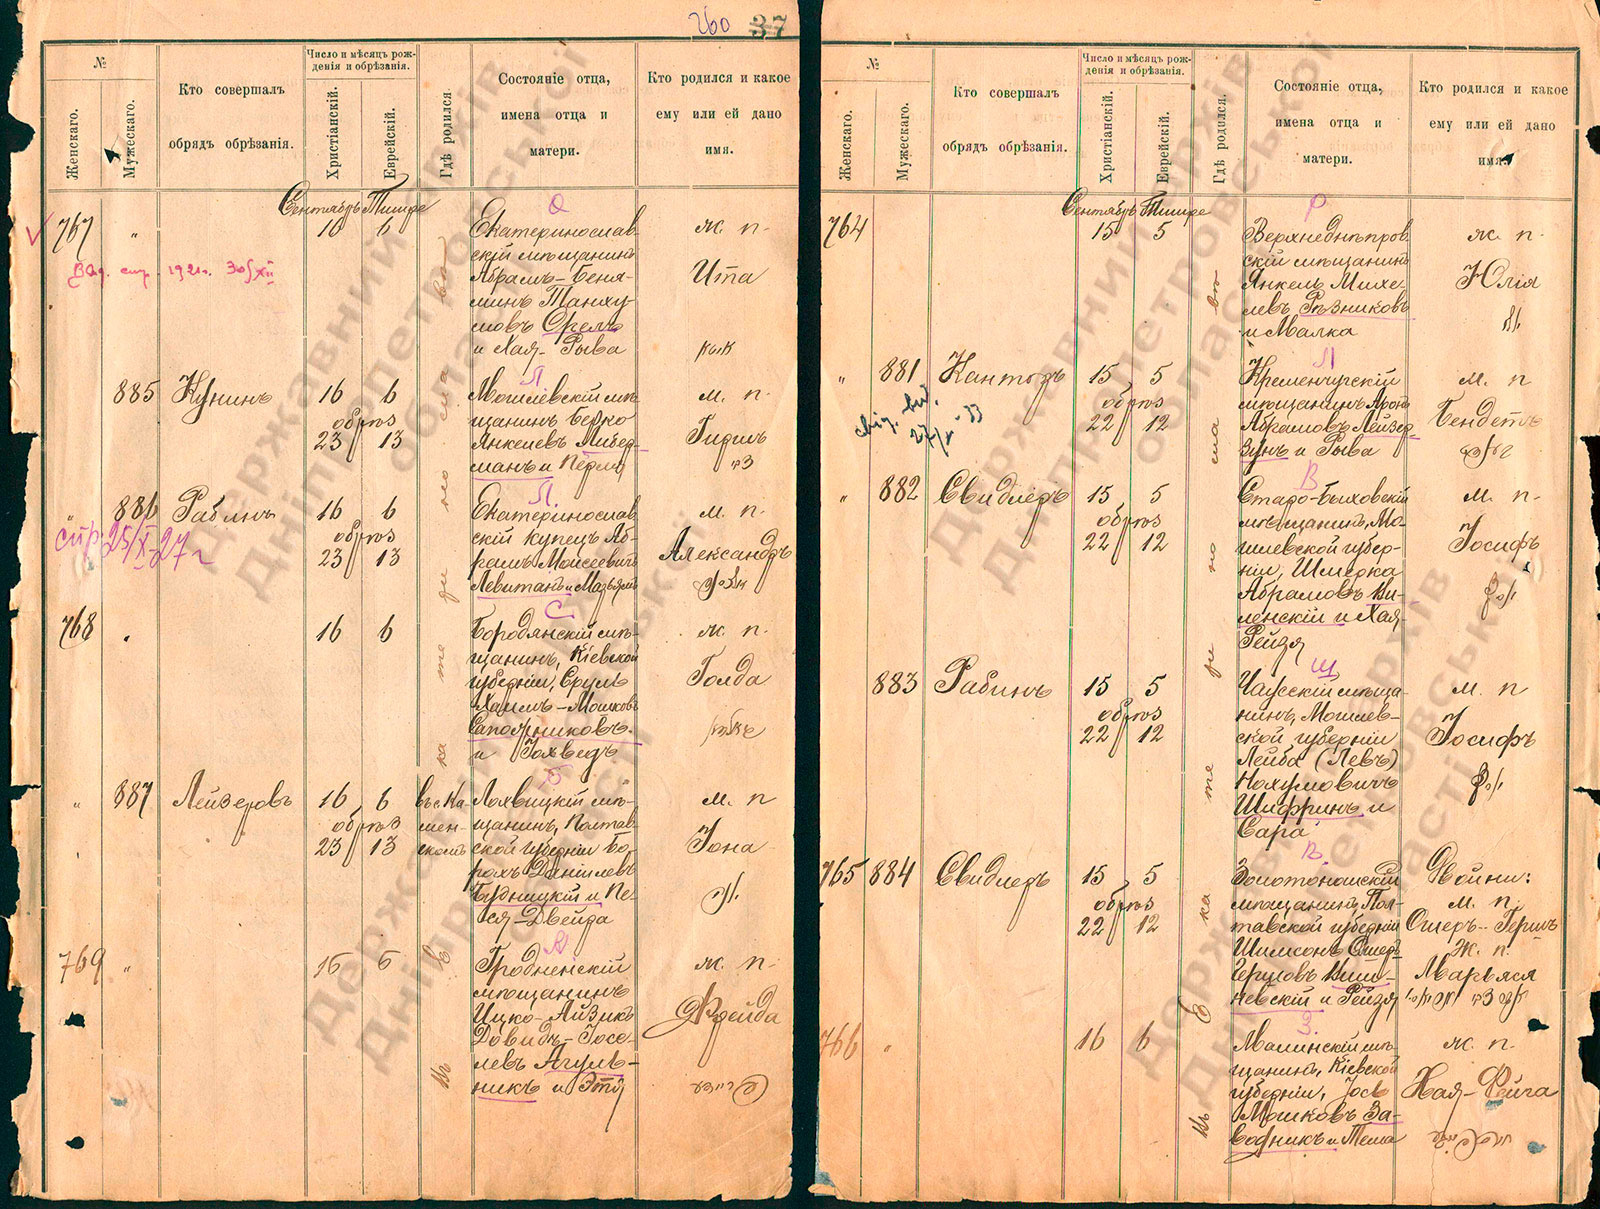 260 37
№
Женскаго.
Мужескаго.
Кто совершалъ
обрядъ обрѣзанія.
Число и мѣсяцъ рож-
денія и обрѣзанія.
Христіанскій.
Еврейскій.
Гдѣ родился.
Состояніе отца,
имена отца и
матери.
Кто родился и какое
ему или ей дано
имя.
Сентябрь Тишре
О
767 " 16 6 Екатеринослав-
скій мѣщанинъ
Абрамъ-Беня-
минъ Танху-
мовъ Орелъ
и Хая-Рыва
ж. п.
Ита
1921г. 30/XII
Л
885 Кунинъ 16 6 Могилевскій мѣ-
щанинъ Берко
Янкелев Либер-
манъ и Перля
обрѣз
23 13
м. п.
Гиршъ
Л
" 886 Рабинъ 16 6 Екатеринослав-
скій купецъ Аб-
рамъ Моисеевичъ
Левитанъ и Марьямъ
обрѣз
23 13
м. п.
Александръ
25/X-27г
С
768 " 16 6 Бородянскій мѣ-
щанинъ, Кіевской
губерніи, Сруль
Хаимъ-Мошковъ
Сапожниковъ
и Іохведъ
ж п.
Голда
Б
" 887 Лейзеровъ 16 6 въ с. Ка-
мен-
скомъ
Лохвицкій мѣ-
щанинъ, Полтав-
ской губерніи Бо-
рохъ Даніилевъ
Будницкій и Пе-
ся-Двейра
обрѣз
23 13
м. п
Іона
А
769 " 16 6 Гродненскій
мѣщанинъ
Ицко-Айзикъ
Довидъ-Іосе-
левъ Агуль-
никъ и Этля
ж п.
Фрейда
въ Екатеринославѣ
№
Женскаго.
Мужескаго.
Кто совершалъ
обрядъ обрѣзанія.
Число и мѣсяцъ рож-
денія и обрѣзанія.
Христіанскій.
Еврейскій.
Гдѣ родился.
Состояніе отца,
имена отца и
матери.
Кто родился и какое
ему или ей дано
имя.
Сентябрь Тишре
Р
764 15 5 Верхнеднѣпров-
скій мѣщанинъ
Янкель Михе-
левъ Рѣзниковъ
и Малка
ж п.
Юлія
Л
" 881 Канторъ 15 5 Кременчугскій
мѣщанинъ Аронъ
Абрамовъ Лейзер-
зунъ и Рыва
обрѣз
22 12
м. п
Бендетъ
В
" 882 Свидлеръ 15 5 Старо-Быховскій
мѣщанинъ, Мо-
гилевской губер-
ніи, Шмерка
Абрамовъ Ви-
ленскій и Хая-
Рейзя
обрѣз
22 12
м. п.
Іосифъ
Ш
883 Рабинъ 15 5 Чаусскій мѣща-
нинъ, Могилев-
ской губерніи
Лейба (Левъ)
Нохумовичъ
Шифринъ и
Сара
обрѣз
22 12
м. п
Іосифъ
В.
765 884 Свидлеръ 15 5 Золотоношскій
мѣщанинъ Пол-
тавской губерніи
Шимсонъ Ошер-
Герцовъ Виш-
невскій и Рейзя
обрѣз
22 12
Двойни:
м. п.
Ошеръ-Гершъ
Ж. п.
Марьяся
З.
766 " 16 6 Малинскій мѣ-
щанинъ, Кіевской
губерніи, Іось
Мошковъ За-
водникъ и Темa
ж. п.
Хая-Фейга
въ Екатеринославѣ
Державний архів
Дніпропетровської
області